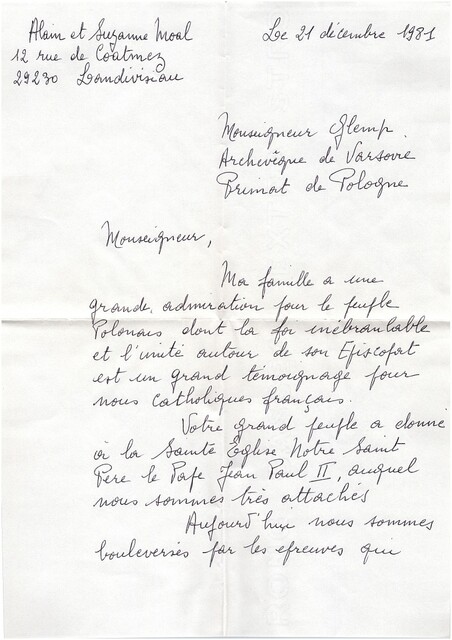 Alain et Suzanne Moal
Le 21 décembre 1981
12 rue de Coatmez
29230 Landivisiau
Monseigneur Glemp.
Archevêque de Varsovie
Primat de Pologne
Monseigneur,
Ma famille a une
grande admiration pour le peuple
Polonais dont la foi inébranlable
et l'unité autour de son Episcopat
est un grand témoignage pour
nous catholiques français.
Votre grand peuple a donné
à la Sainte Eglise Notre Saint
Père le Pape Jean Paul II, auquel
nous sommes très attachés
Aujourd'hui nous sommes
bouleversés par les epreuves qui